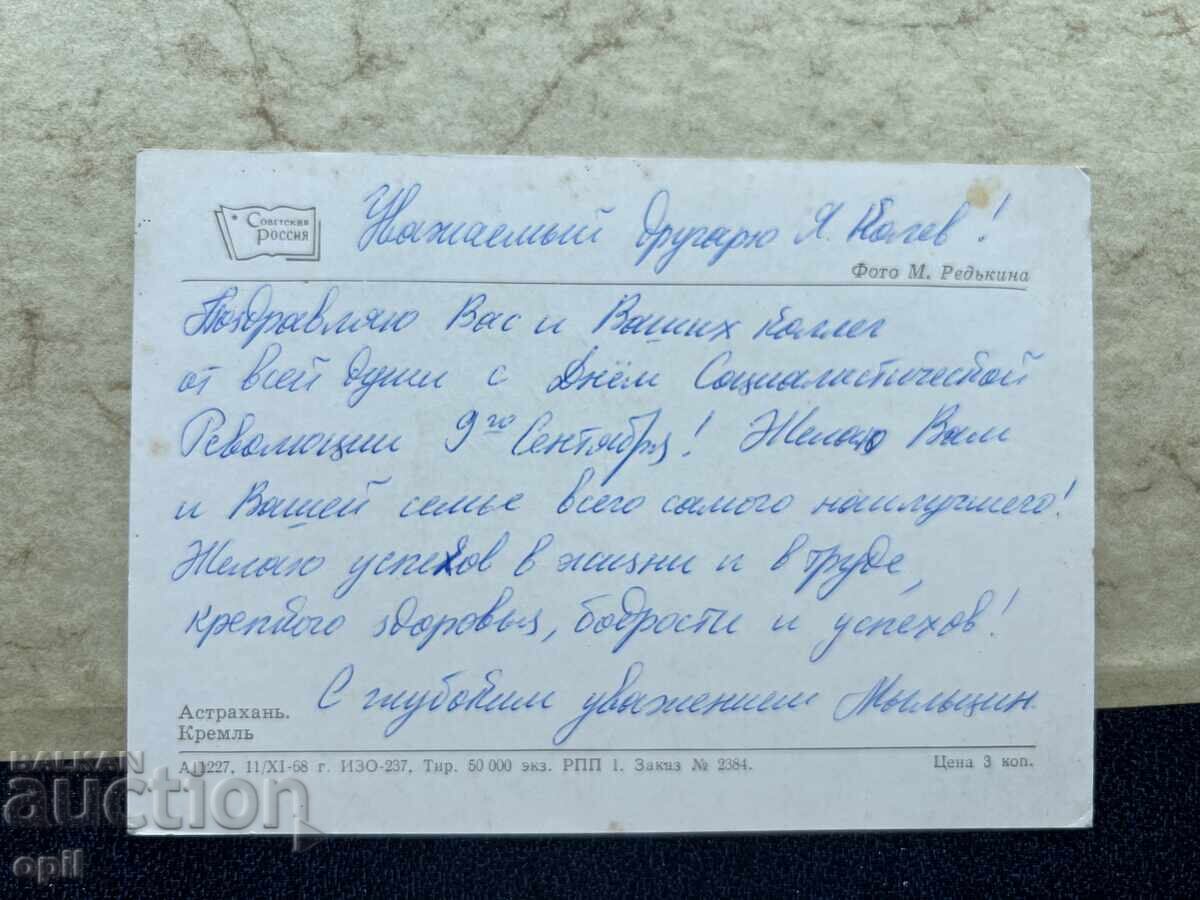 Советская
Россия
Уважаемый другарю Я. Колев!
Фото М. Редькина
Поздравляю Вас и Ваших коллег
от всей души с Днём Социалистической
Революции 9го Сентября! Желаю Вам
и Вашей семье всего самого наилучшего!
Желаю успехов в жизни и в труде,
крепкого здоровья, бодрости и успехов!
С глубоким уважением Мыльцин.
Астрахань.
Кремль
А11227, 11/XI-68 г. ИЗО-237, Тир. 50 000 экз. РПП 1. Заказ № 2384.
Цена 3 коп.
BALKAN
auction
opil